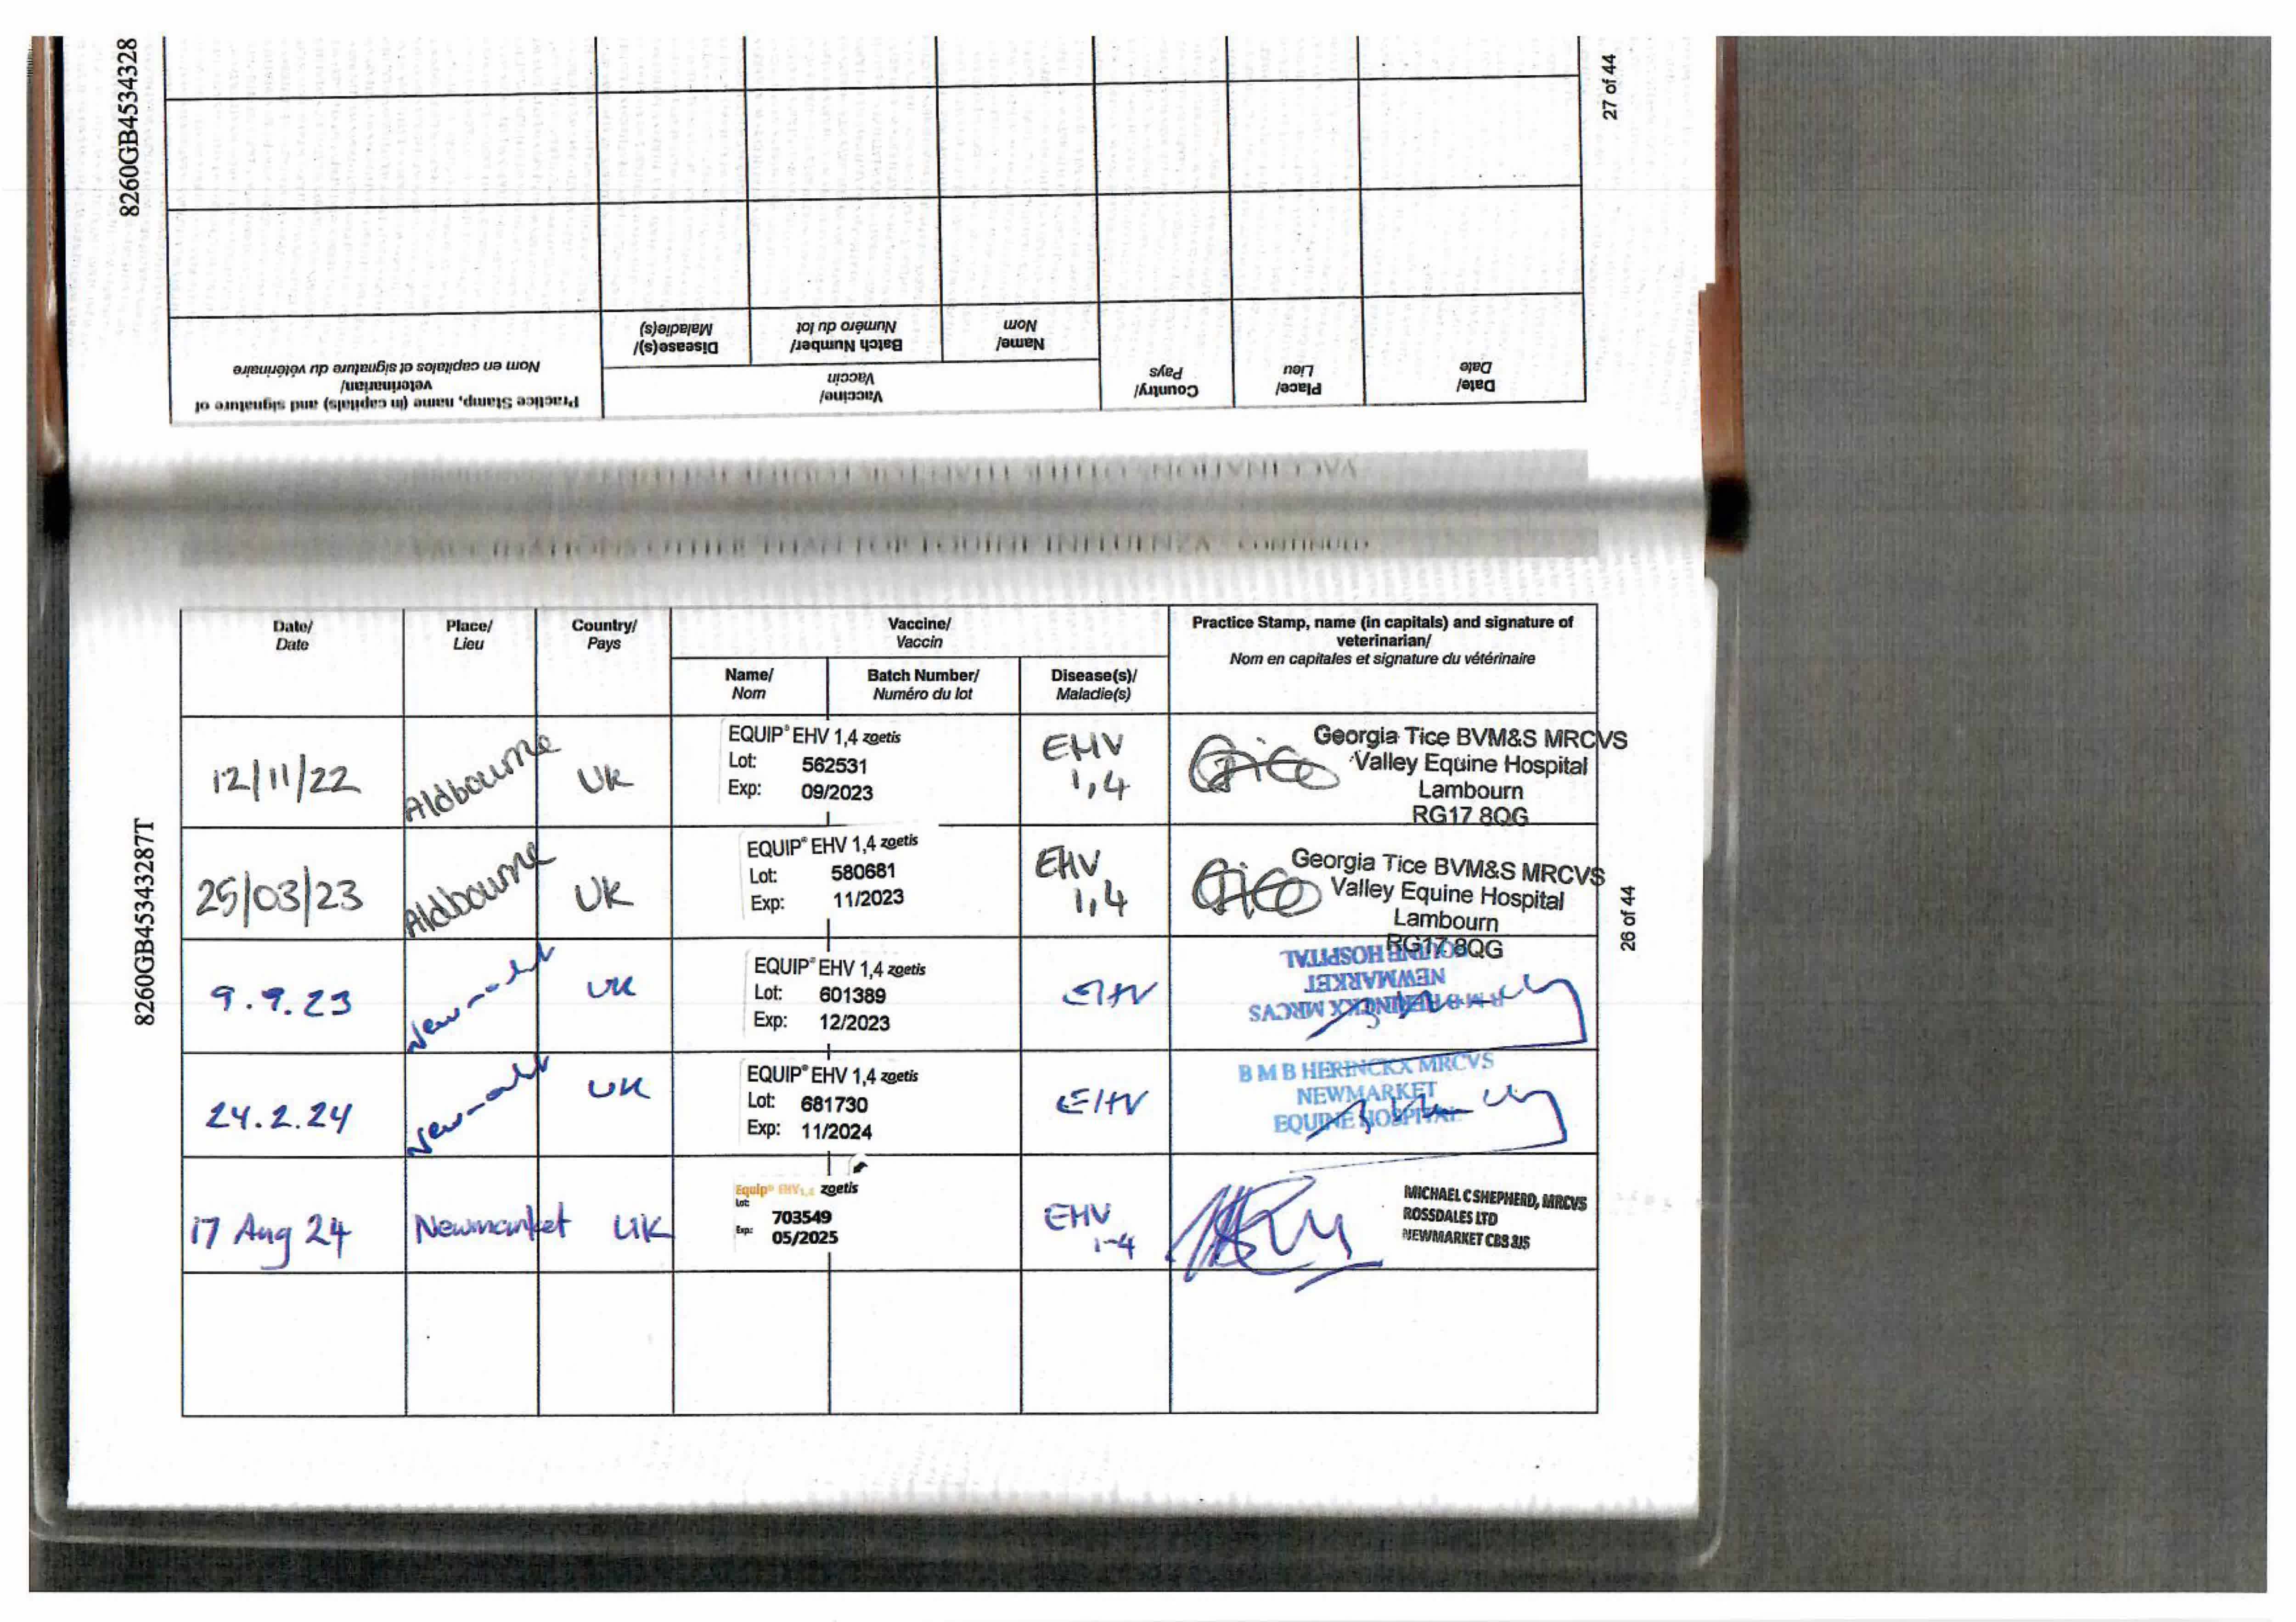 8260GB4534328
27 of 44
Practice Stamp, name (in capitals) and signature of
veterinarian/
Nom en capitales et signature du vétérinaire
Vaccine/
Vaccin
Disease(s)/
Maladie(s)
Batch Number/
Numéro du lot
Name/
Nom
Country/
Pays
Place/
Lieu
Date/
Date
VACCINATIONS OTHER THAN FOR EQUINE INFLUENZA CONTINUED
8260GB45343287T
26 of 44
Date/
Date
Place/
Lieu
Country/
Pays
Vaccine/
Vaccin
Name/
Nom
Batch Number/
Numéro du lot
Disease(s)/
Maladie(s)
Practice Stamp, name (in capitals) and signature of
veterinarian/
Nom en capitales et signature du vétérinaire
12/11/22
Aldbourne
UK
EQUIP® EHV 1,4 zoetis
Lot: 562531
Exp: 09/2023
EHV
1,4
Georgia Tice BVM&S MRCVS
Valley Equine Hospital
Lambourn
RG17 8QG
25/03/23
Aldbourne
UK
EQUIP® EHV 1,4 zoetis
Lot: 580681
Exp: 11/2023
EHV
1,4
Georgia Tice BVM&S MRCVS
Valley Equine Hospital
Lambourn
RG17 8QG
9.9.23
UK
EQUIP® EHV 1,4 zoetis
Lot: 601389
Exp: 12/2023
EHV
B M B HERINCKX MRCVS
NEWMARKET
EQUINE HOSPITAL
24.2.24
UK
EQUIP® EHV 1,4 zoetis
Lot: 681730
Exp: 11/2024
EHV
B M B HERINCKX MRCVS
NEWMARKET
EQUINE HOSPITAL
17 Aug 24
Newmarket
UK
Equip® EHV 1,4 zoetis
Lot:
703549
Exp: 05/2025
EHV
1-4
MICHAEL C SHEPHERD, MRCVS
ROSSDALES LTD
NEWMARKET CB8 8JS